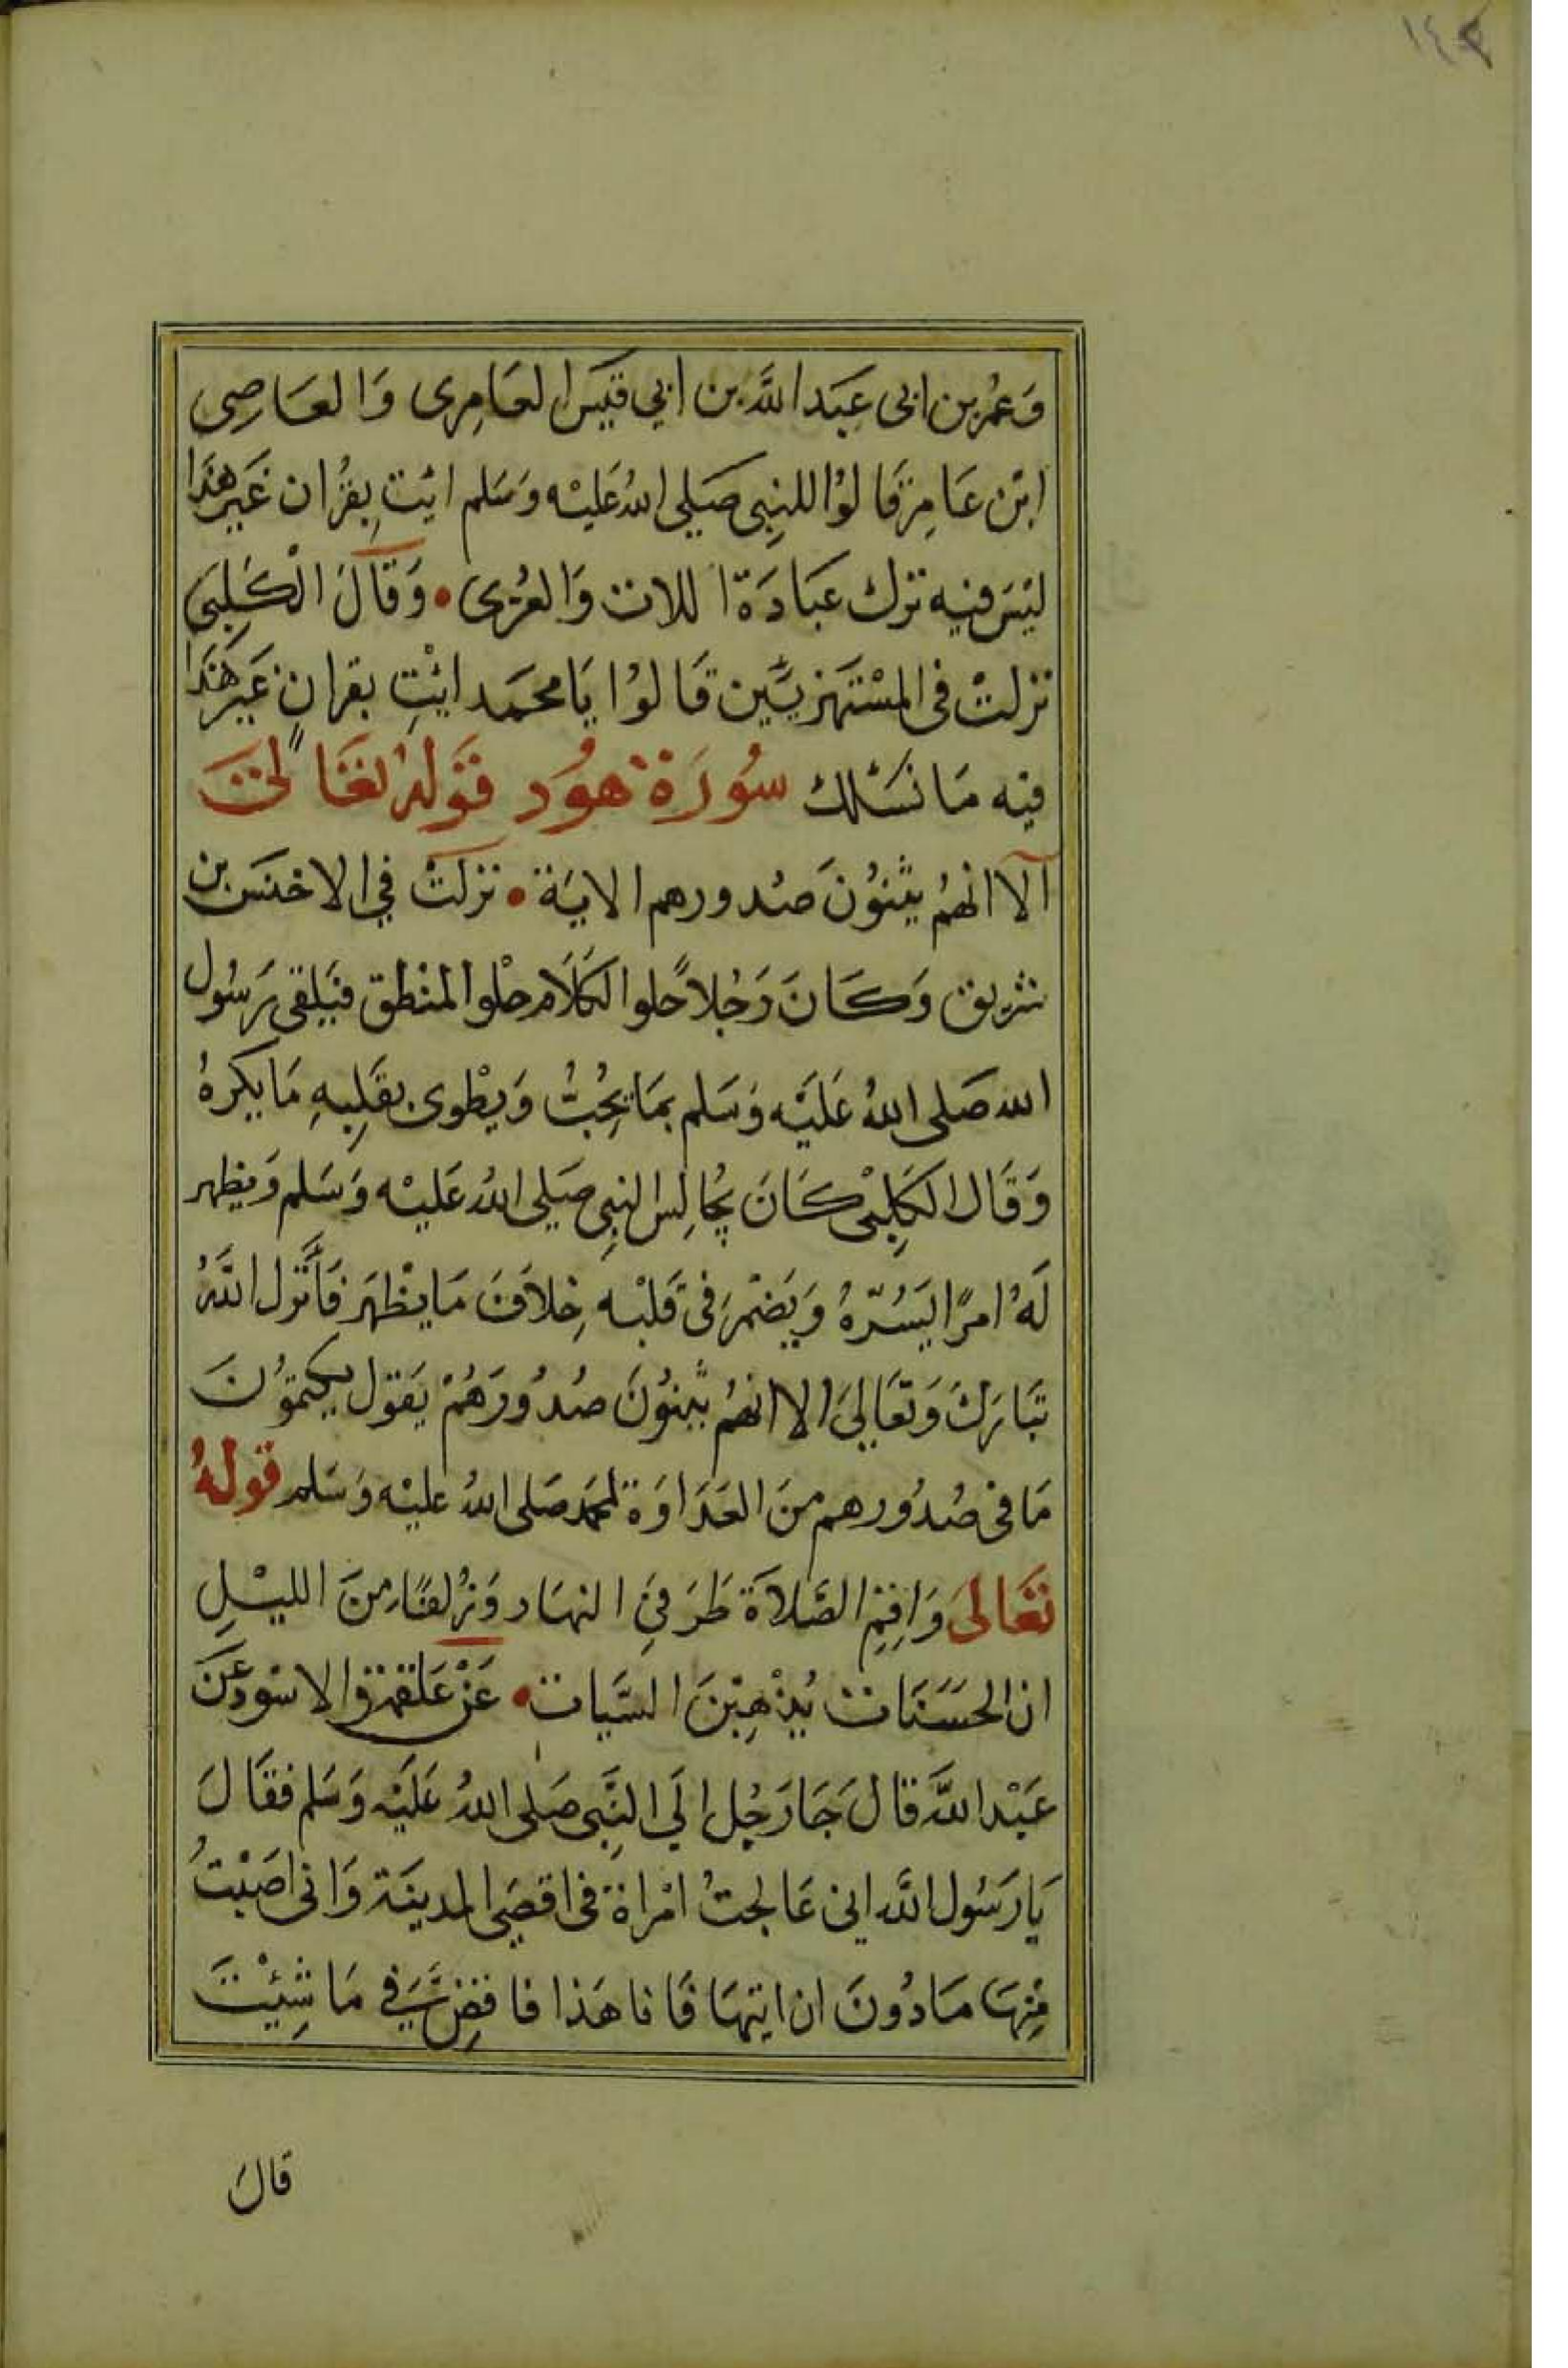 وَعُمر بن ابى عبَد اللَّه بن ابي قيَس العَامِرى وَالعَاصِى
ابْن عَامِر قَالوُا للنِبى صَلي اللهُ عَليْه وَسَلم ايْتِ بِقرُان غَير هَذا
ليْسَ فيه ترك عبَادَة اللات وَالعُزى • وَقَالَ الْكَلِبىَ
نزلتْ فى المسْتهَزييَّن قَالوُا يَا محمَد ايْتِ بقرانٍ غَير هَذَا
فيه مَا نسَئلك سُورَة هوُد قوَلهُ تعَالىَ
آلا انهمُ يثنوُنَ صُدورهم الايَة • نزلتْ في الاخنسَ بن
شريق وَكَانَ رَجُلاً حلو الكَلاَم حلْو المنْطق فيَلقى رَسُول
الله صَلى اللهُ عَليَه وَسَلم بمَا يحُبُّ وَيطْوى بقَلِبهِ مَا يكرهُ
وَقَال الكَلِبْى كَانَ يُجَالِس النبِى صَلي اللهُ عَليْه وَسَلم وَيظهر
لَهُ امرًا يَسُرّهُ وَيَضْمرَ فى قَلبْه خِلاَفَ مَا يظْهَر فَأَنْزل اللَّهُ
تبَارَكَ وَتعَالىَ الا انهمُ يثْنوُنَ صُدُورَهُمْ يَقول يَكتموُنَ
مَا فى صُدُورهم منَ العَدَاوَة لمحَمد صَلى اللهُ عليْه وَسَلم قولهُ
تعَالىَ وَاقِمِ الصَّلاَة طَرَفيَ النهَار وَزُلفًا مِنَ الليْلِ
ان الحسَنَات يُذْهِبْنَ السَّيات • عَنْ عَلقمَة وَالاسْود عَن
عَبْد اللَّه قالَ جَا رَجُل الَي النَّبِى صَلى اللهُ عَليَه وَسَلم فقَالَ
يَا رَسُول اللَّه اني عَالجتُ امْراة فى اقصَي المدينَة وَانى اصَبْتُ
مِنْهَا مَا دُونَ ان ايتهَا فَانا هَذا فاقضِ فيَّ مَا شِئْتَ
قالَ